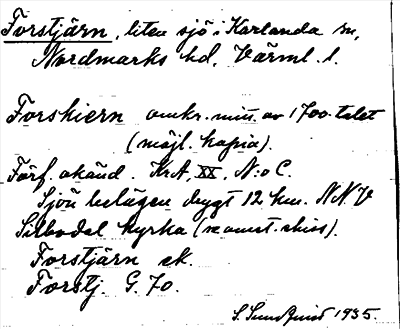 Forstjärn, liten sjö i Karlanda sn,
Nordmarks hd, Värml. l.
Forskiern omkr. mitt. av 1700-talet
(möjl. kopia).
Förf. okänd. KrA, XX, N:o C.
Sjön belägen drygt 12 km. NNV
Silbodal kyrka (manuscr. skiss).
Forstjärn ek.
Forstj. G. 70.
S. Sundquist 1935.